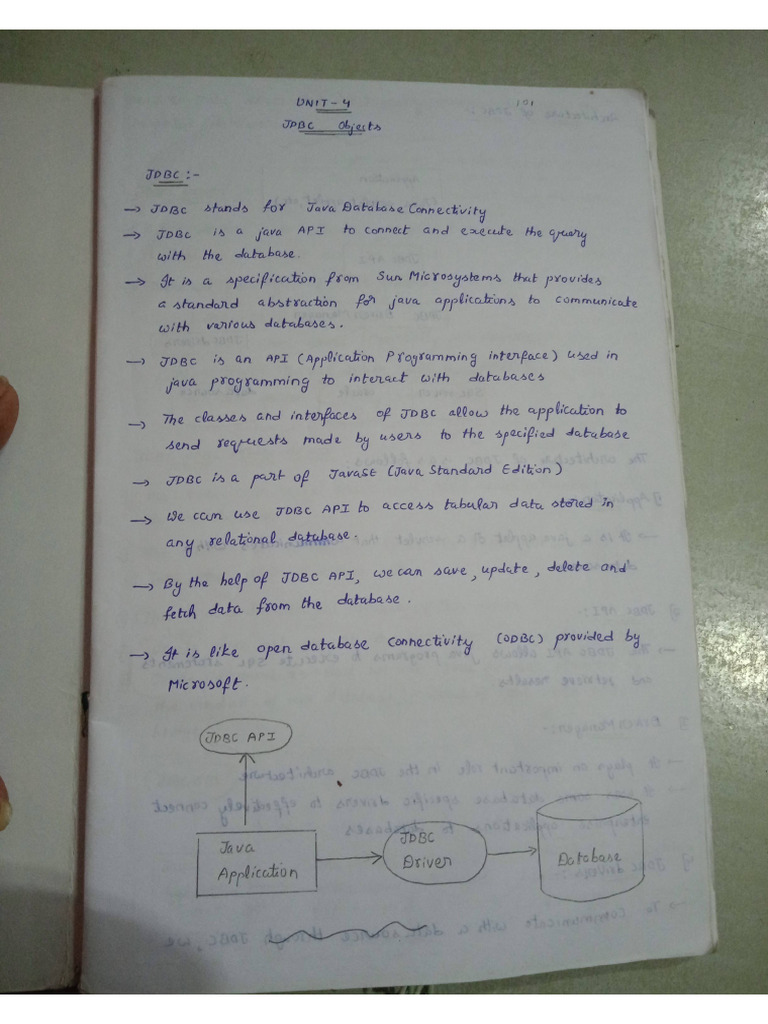 UNIT-4
101
JDBC Objects
JDBC :-
→ JDBC stands for Java Database Connectivity
→ JDBC is a java API to connect and execute the query
with the database.
→ It is a specification from Sun Microsystems that provides
a standard abstraction for java applications to communicate
with various databases.
→ JDBC is an API (Application Programming interface) used in
java programming to interact with databases
→ The classes and interfaces of JDBC allow the application to
send requests made by users to the specified database
→ JDBC is a part of JavaSE (Java Standard Edition)
→ We can use JDBC API to access tabular data stored in
any relational database.
→ By the help of JDBC API, we can save, update, delete and
fetch data from the database.
→ It is like open database connectivity (ODBC) provided by
Microsoft.
JDBC API
Java
Application
JDBC
Driver
Database